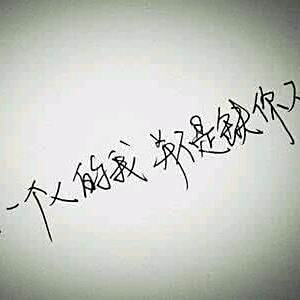 一个人的我 并不是缺你